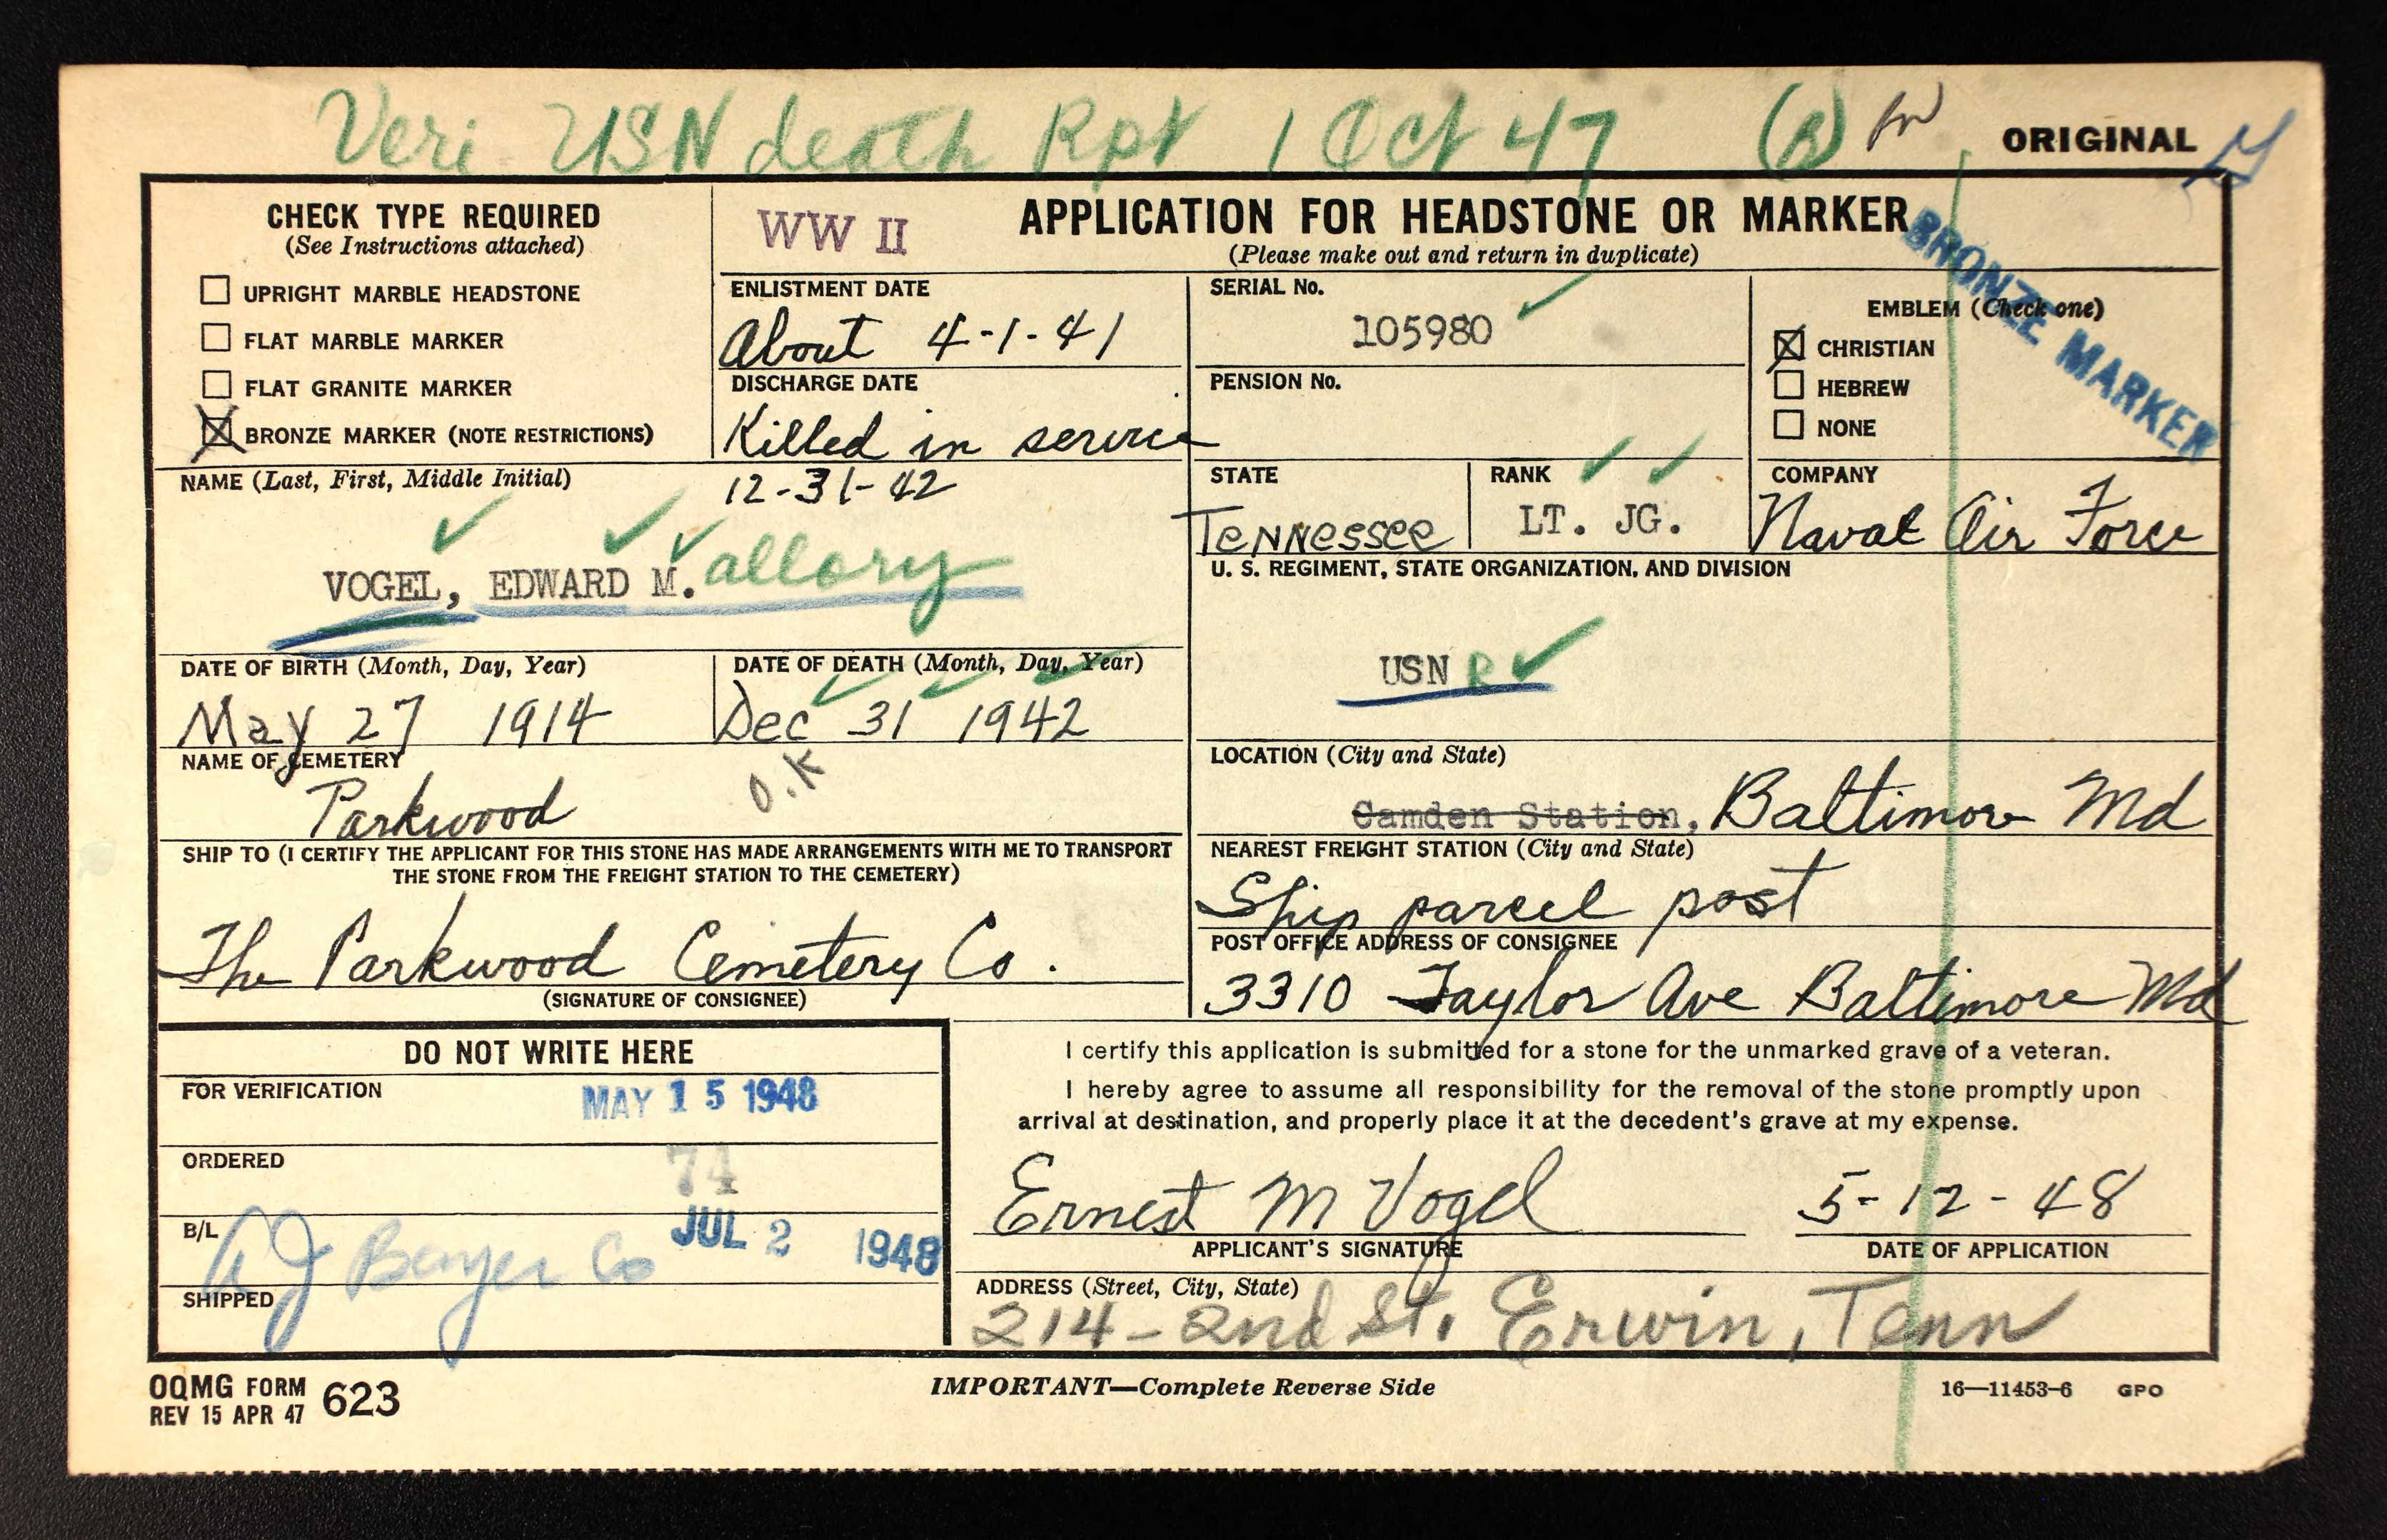 Veri USN death Rpt 1 Oct 47
ORIGINAL
CHECK TYPE REQUIRED
(See Instructions attached)
UPRIGHT MARBLE HEADSTONE
FLAT MARBLE MARKER
FLAT GRANITE MARKER
BRONZE MARKER (NOTE RESTRICTIONS)
WW II
APPLICATION FOR HEADSTONE OR MARKER
(Please make out and return in duplicate)
BRONZE MARKER
ENLISTMENT DATE
About 4-1-41
DISCHARGE DATE
Killed in service
12-31-42
SERIAL No.
105980
PENSION No.
EMBLEM (Check one)
CHRISTIAN
HEBREW
NONE
NAME (Last, First, Middle Initial)
VOGEL, EDWARD M. allory
STATE
Tennessee
RANK
LT. JG.
COMPANY
Naval Air Force
U. S. REGIMENT, STATE ORGANIZATION, AND DIVISION
USN R
DATE OF BIRTH (Month, Day, Year)
May 27 1914
DATE OF DEATH (Month, Day, Year)
Dec 31 1942
NAME OF CEMETERY
Parkwood
O.K
LOCATION (City and State)
Camden Station, Baltimore Md
SHIP TO (I CERTIFY THE APPLICANT FOR THIS STONE HAS MADE ARRANGEMENTS WITH ME TO TRANSPORT
THE STONE FROM THE FREIGHT STATION TO THE CEMETERY)
The Parkwood Cemetery Co.
(SIGNATURE OF CONSIGNEE)
NEAREST FREIGHT STATION (City and State)
Ship parcel post
POST OFFICE ADDRESS OF CONSIGNEE
3310 Taylor Ave Baltimore Md
DO NOT WRITE HERE
FOR VERIFICATION
MAY 15 1948
ORDERED
74
B/L
JUL 2 1948
A J Co
SHIPPED
I certify this application is submitted for a stone for the unmarked grave of a veteran.
I hereby agree to assume all responsibility for the removal of the stone promptly upon
arrival at destination, and properly place it at the decedent's grave at my expense.
Ernest M Vogel
APPLICANT'S SIGNATURE
5-12-48
DATE OF APPLICATION
ADDRESS (Street, City, State)
214-2nd St. Erwin, Tenn
OQMG FORM 623
REV 15 APR 47
IMPORTANT—Complete Reverse Side
16—11453-6 GPO